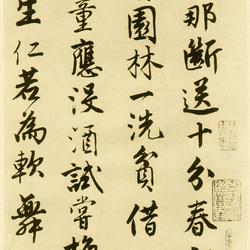 那斷送十分春
園林一洗貧借
童應没酒試嘗
生仁若為軟舞